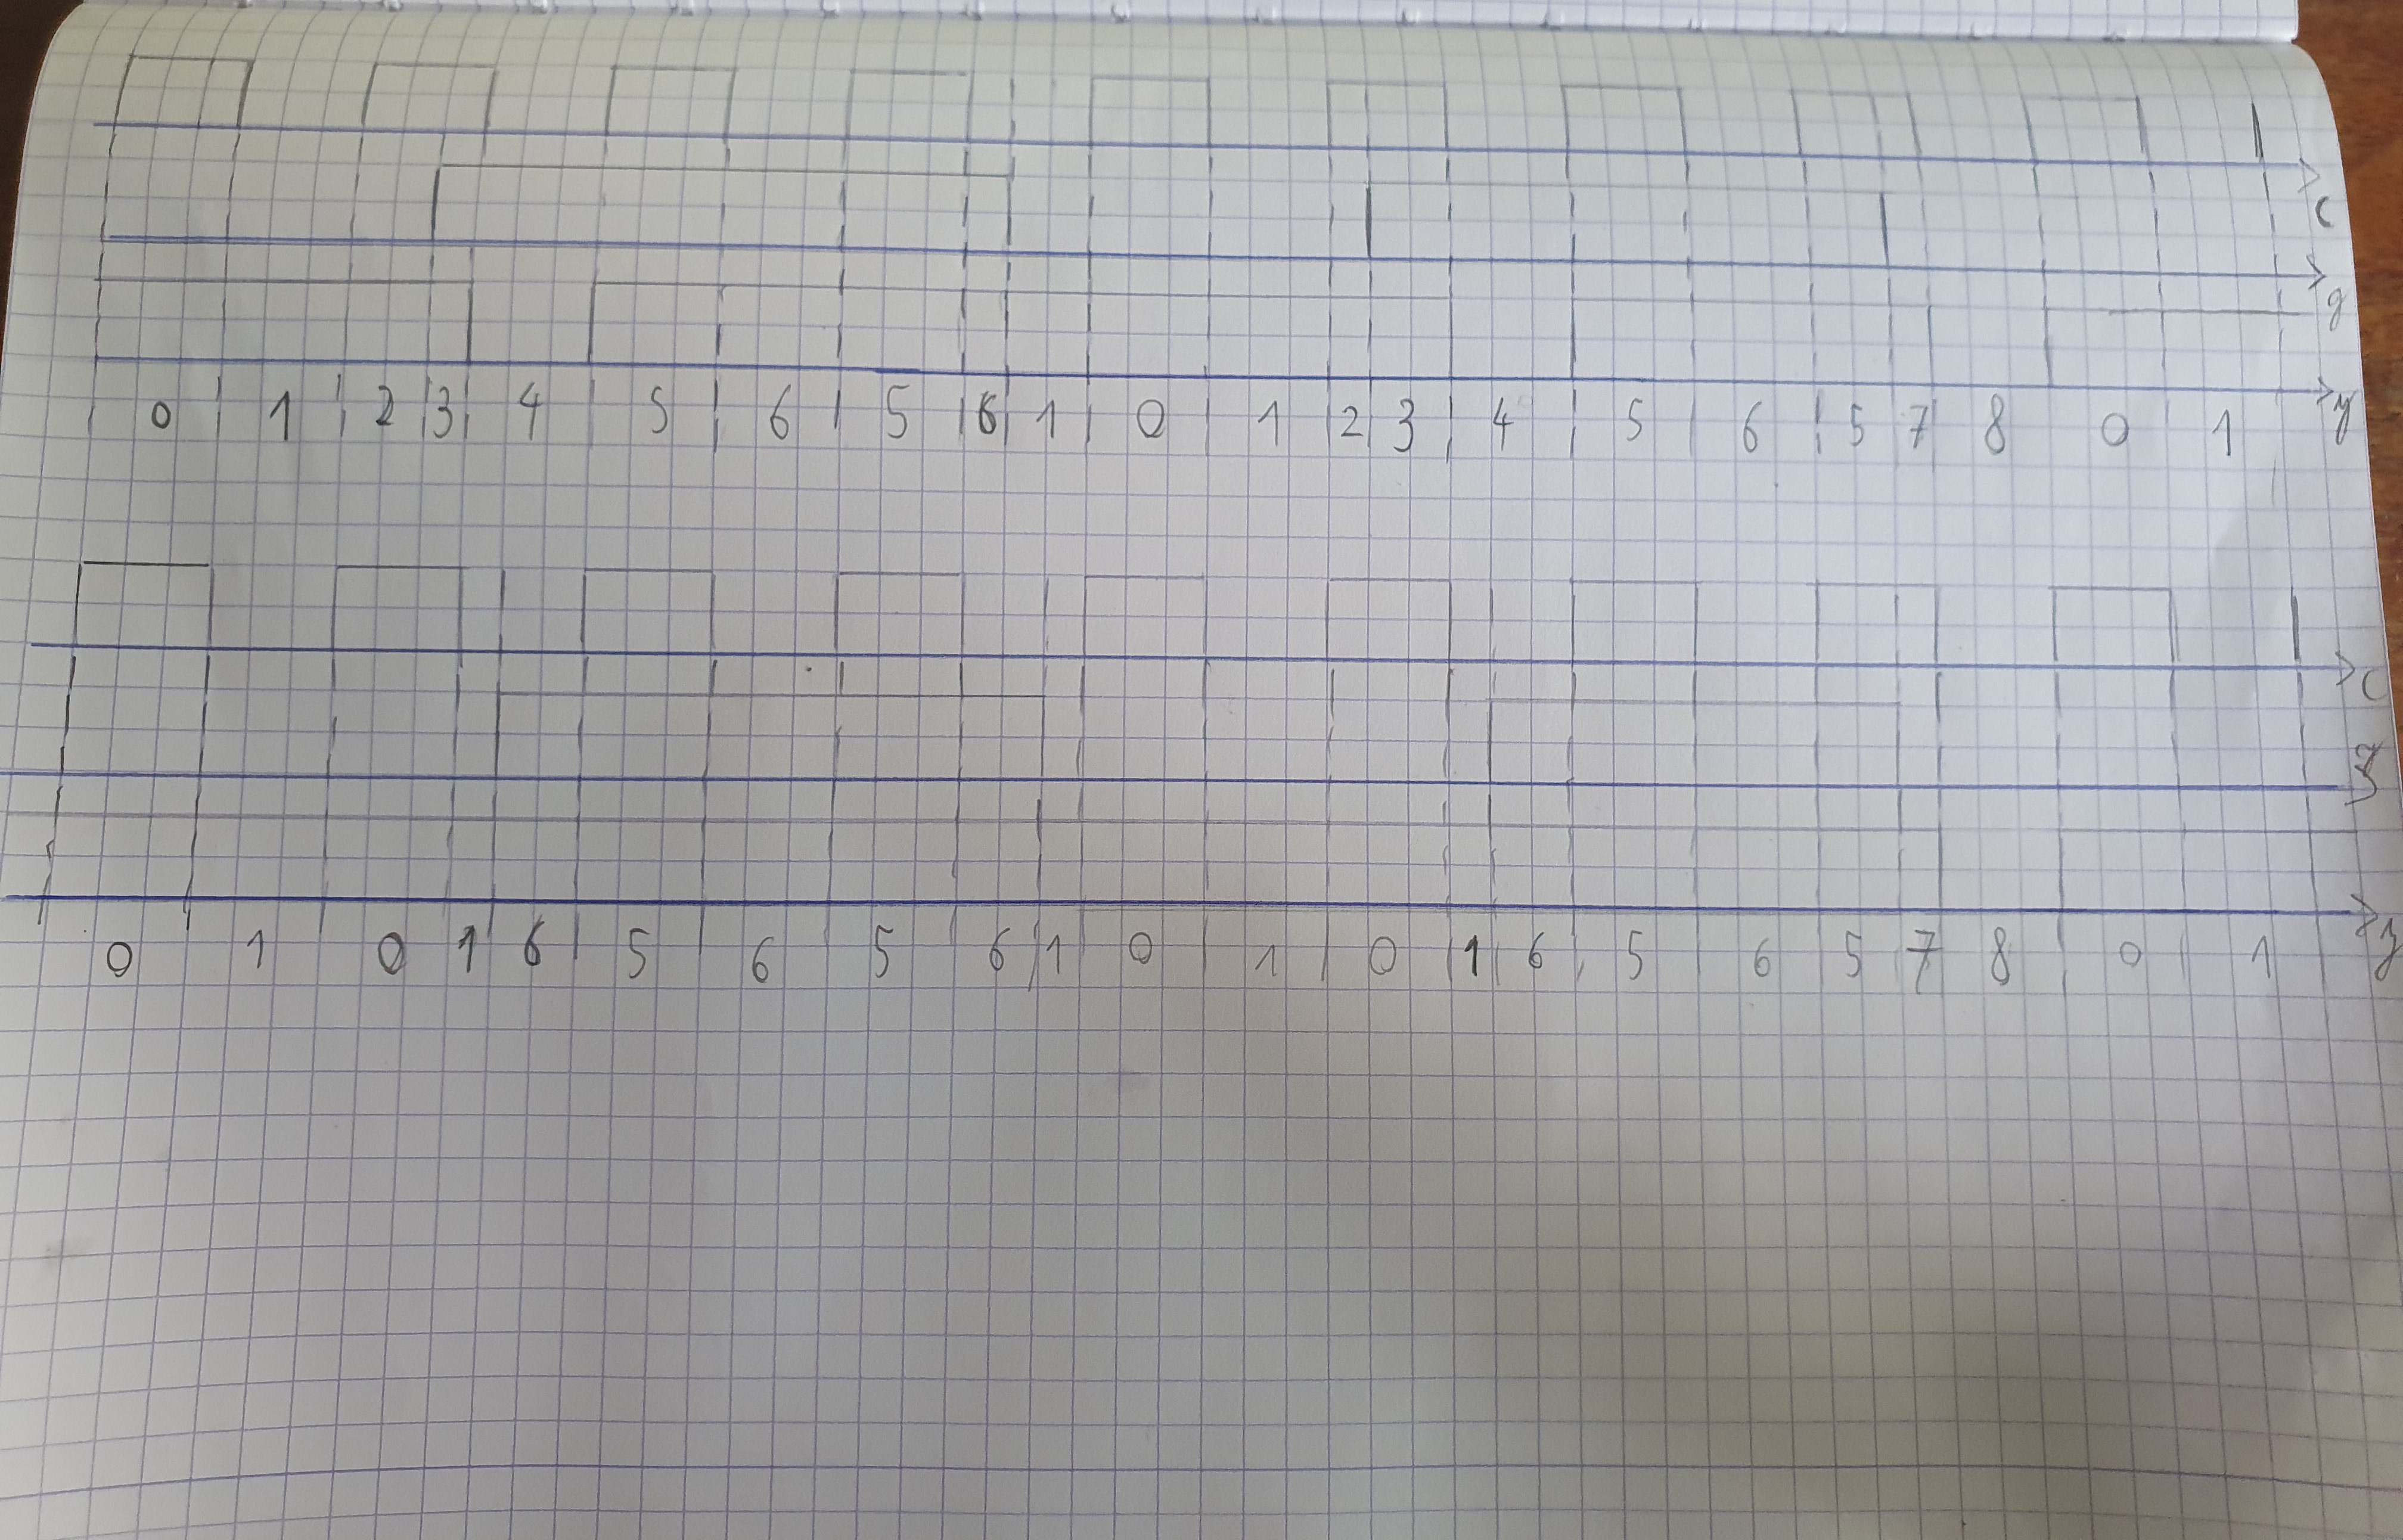 c
g
0 1 2 3 4 5 6 5 6 1 0 1 2 3 4 5 6 5 7 8 0 1 y
c
0 1 0 1 6 5 6 5 6 1 0 1 0 1 6 5 6 5 7 8 0 1 y